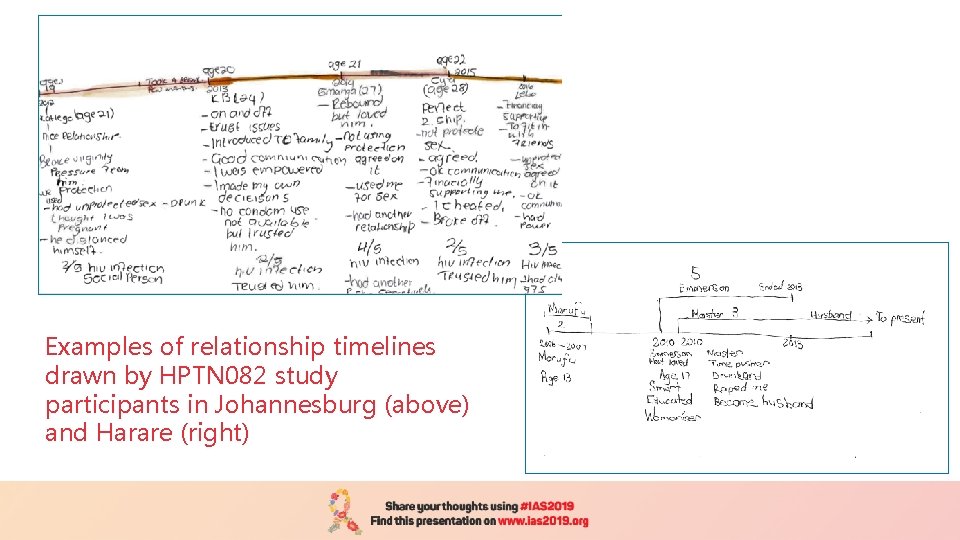 age 20
age 21
age 22
19
2013
2014
2015
2016
2012
KB (24)
(27)
(age 28)
college (age 21)
- on and off
- Rebound
Perfect
Financially
Nice Relationship
- trust issues
but loved him.
support
- Introduced to family
- not using protection
sex.
To fit in with friends
Broke virginity
- Good communication
agreed on it
- agreed.
- unprotected sex
Pressure from him.
- I was empowered
- OK communication
agreed on it
Protection
- I made my own decisions
- used me for sex
- Financially supporting me.
- OK
used
- had unprotected sex - Drunk
- no condom use
- had another relationship
- I cheated,
- had power
thought I was pregnant
not available
- Broke off
- he distanced himself.
but trusted him.
4/5
2/5
3/5
2/5 hiv infection
2/5
hiv infection
hiv infection
Social Person
hiv infection
- had another
Trusted him
Trusted him.
5
Emmerson
Ended 2013
2
Master 3
Husband
To present
2006 - 2007
2010 2010
2013
Age 13
Emmerson Master
Most loved Time
Age 17 Drunkard
Smart Raped me
Educated Became husband
Womaniser
Examples of relationship timelines
drawn by HPTN 082 study
participants in Johannesburg (above)
and Harare (right)
Share your thoughts using #IAS2019
Find this presentation on www.ias2019.org